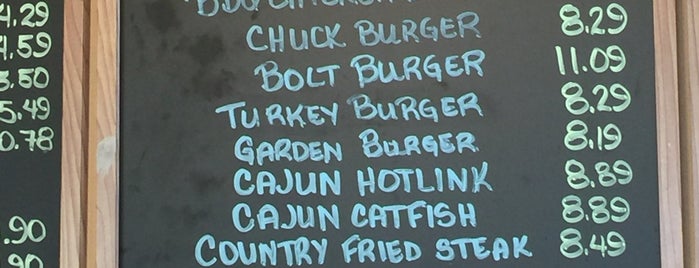 4.29
4.59
5.50
5.49
0.78
.90
.90
CHUCK BURGER 8.29
BOLT BURGER 11.09
TURKEY BURGER 8.29
GARDEN BURGER 8.19
CAJUN HOTLINK 8.89
CAJUN CATFISH 8.89
COUNTRY FRIED STEAK 8.49